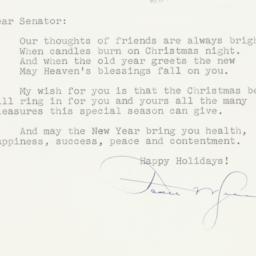 ear Senator:
Our thoughts of friends are always brigh
When candles burn on Christmas night.
And when the old year greets the new
May Heaven's blessings fall on you.
My wish for you is that the Christmas be
ll ring in for you and yours all the many
easures this special season can give.
And may the New Year bring you health,
appiness, success, peace and contentment.
Happy Holidays!